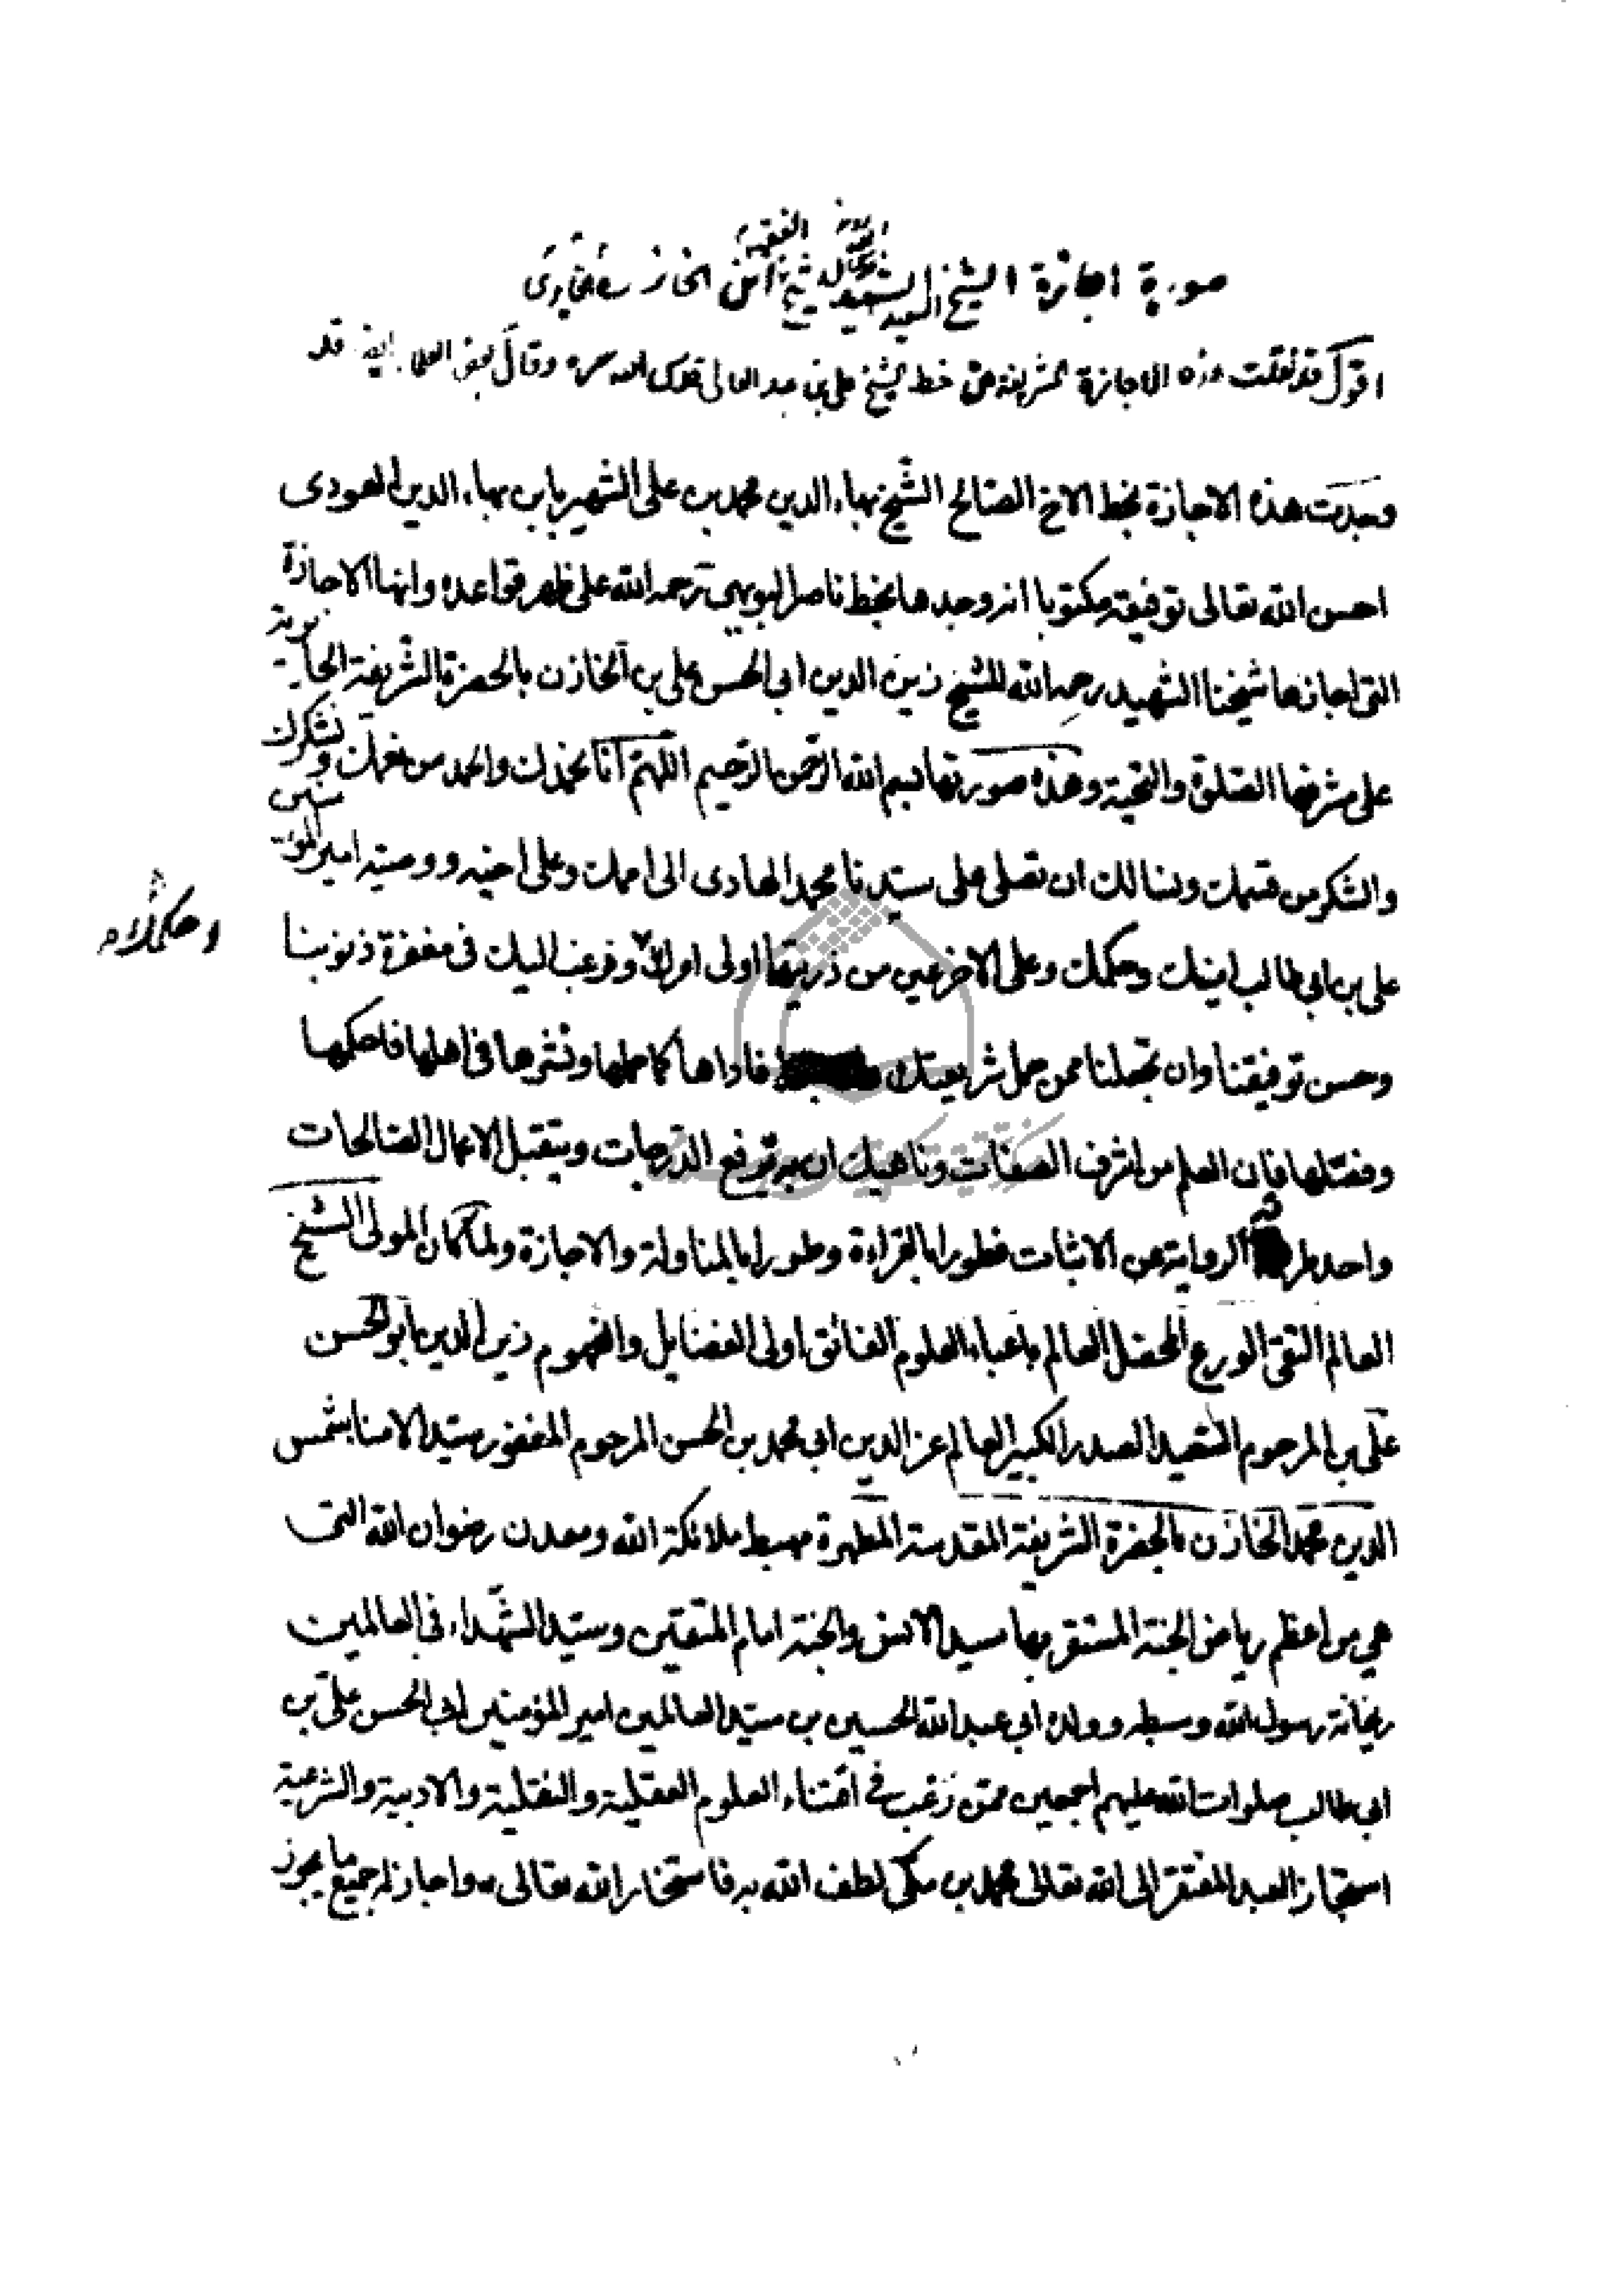 صورة اجازة الشيخ السعيد الشهيد للشيخ الفقيه ابن الخازن الحايرى
اقول قد نقلت هذه الاجازة الشريفة من خط الشيخ على بن عبد العالى قدس الله سره وقال بعض العلماء ايضا قد
وجدت هذه الاجازة بخط الاخ الصالح الشيخ بهاء الدين محمد بن على الشهير بابن بهاء الدين العودى
احسن الله تعالى توفيقه مكتوبا انه وجدها بخط ناصر البويهى رحمه الله على ظهر قواعده وانها الاجازة
التى اجازها شيخنا الشهيد رحمه الله للشيخ زين الدين ابى الحسن على بن الخازن بالحضرة الشريفة الحايرية
على مشرفها الصلوة والتحية وهذه صورتها بسم الله الرحمن الرحيم اللهم انا نحمدك والحمد من نعمك ونشكرك
والشكر من قسمك ونسالك ان تصلى على سيدنا محمد الهادى الى اممك وعلى اخيه ووصيه امير المؤمنين
على بن ابى طالب امينك وحكمك وعلى الاخر عين من ذريتهما اولى اولى ونرغب اليك فى مغفرة ذنوبنا
وحسن توفيقنا وان تجعلنا ممن حمل شريعتك فاداها كما حملها ونشرها فى اهلها فاحكمها
وفصلها فان العلم من اشرف الصفات وناهيك ان به ترفع الدرجات ويتقبل الاعمال الصالحات
واحد طرقه الرواية عن الاثبات فطورا بالقراءة وطورا بالمناولة والاجازة ولما كان المولى الشيخ
العالم التقى الورع المحصل العالم باعباء العلوم الفائق اولى الفضايل والفهوم زين الدين ابو الحسن
على بن المرحوم السعيد الصدر الكبير العالم عز الدين ابى محمد بن الحسن المرحوم المغفور سيد الامنا شمس
الدين محمد الخازن بالحضرة الشريفة المقدسة المطهرة مهبط ملائكة الله ومعدن رضوان الله التى
هى من اعظم رياض الجنة المستقر بها سيد الانس والجنة امام المتقين وسيد الشهداء فى العالمين
ريحانة رسول الله وسبطه وولده ابى عبد الله الحسين بن سيد العالمين امير المؤمنين ابى الحسن على بن
ابى طالب صلوات الله عليهم اجمعين ممن رغب فى اقتناء العلوم العقلية والنقلية والادبية والشرعية
استجاز العبد المفتقر الى الله تعالى محمد بن مكى لطف الله به فاستخار الله تعالى واجاز له جميع ما يجوز